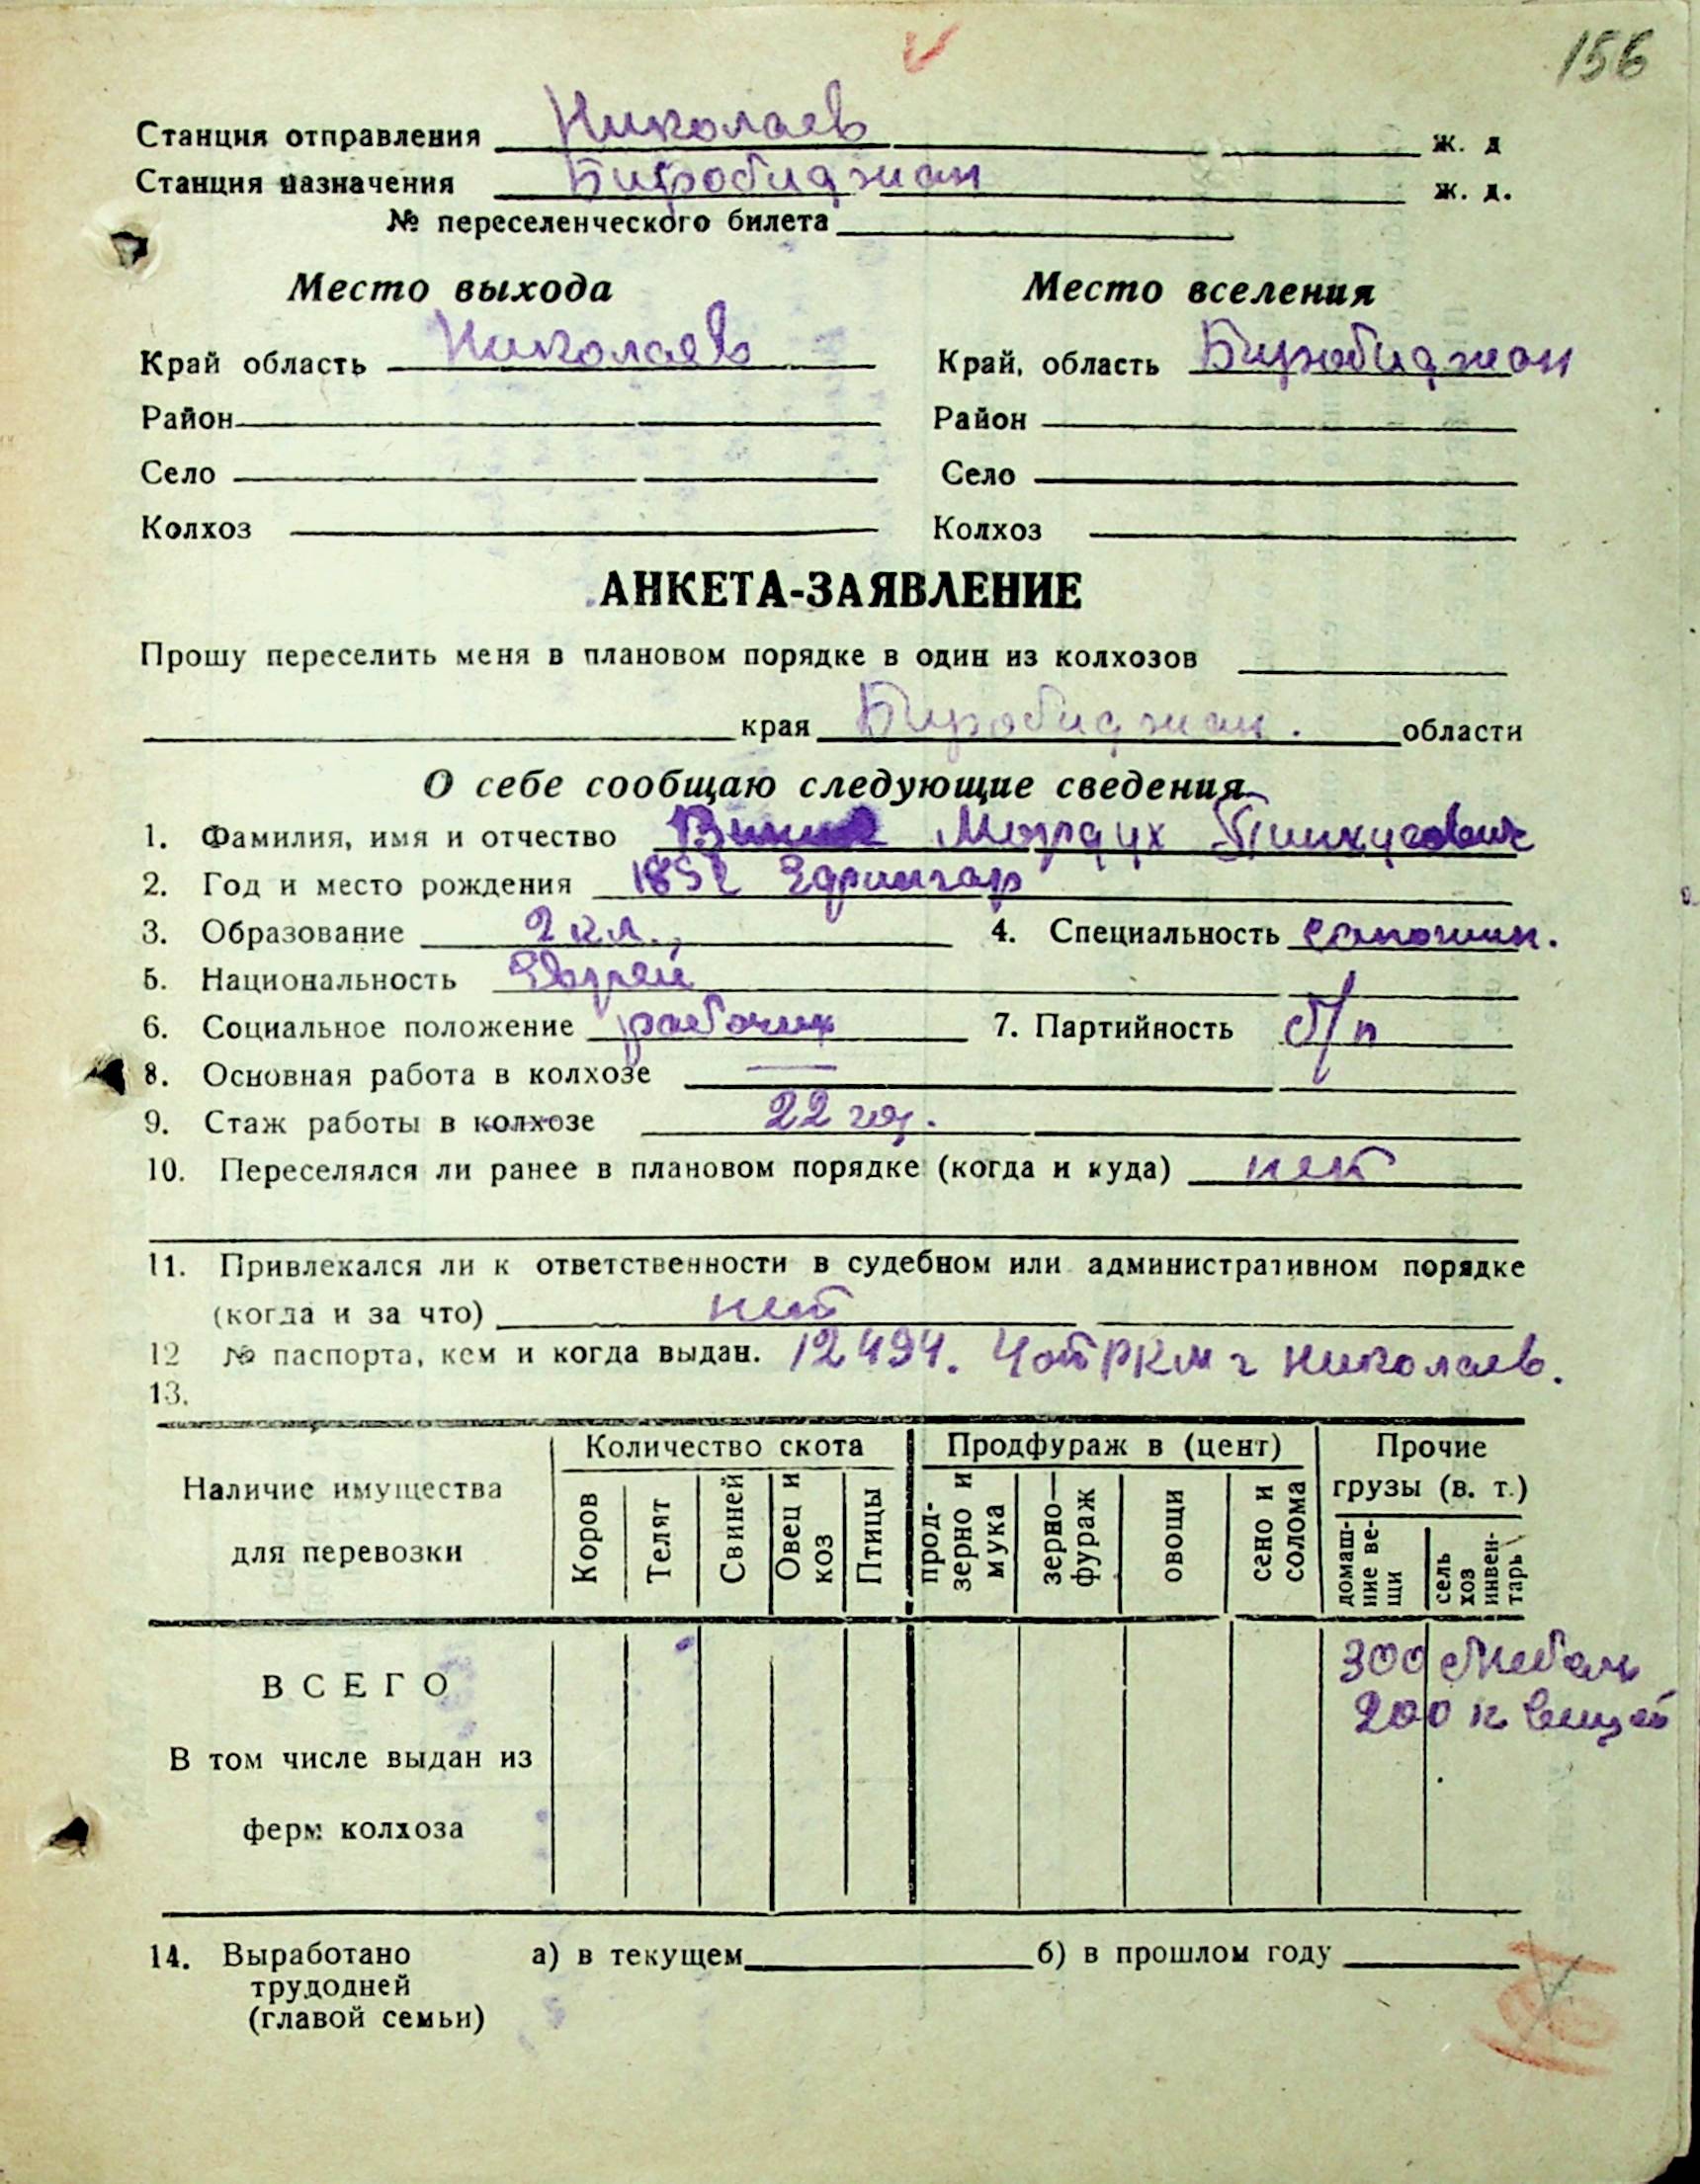 156
Станция отправления Николаев ж. д
Станция назначения Биробиджан ж. д.
№ переселенческого билета
Место выхода Место вселения
Край область Николаев Край, область Биробиджан
Район Район
Село Село
Колхоз Колхоз
АНКЕТА-ЗАЯВЛЕНИЕ
Прошу переселить меня в плановом порядке в один из колхозов
края Биробиджан. области
О себе сообщаю следующие сведения
1. Фамилия, имя и отчество Мордух Пинкусович
2. Год и место рождения
3. Образование 2 кл., 4. Специальность сапожник.
5. Национальность Еврей
6. Социальное положение рабочих 7. Партийность б/п
8. Основная работа в колхозе —
9. Стаж работы в колхозе 22 год.
10. Переселялся ли ранее в плановом порядке (когда и куда) нет
11. Привлекался ли к ответственности в судебном или административном порядке
(когда и за что) нет
12 № паспорта, кем и когда выдан. 12494. 4 от РКМ г Николаев.
13.
Наличие имущества для перевозки
Количество скота Продфураж в (цент) Прочие грузы (в. т.)
Коров Телят Свиней Овец и коз Птицы прод-зерно и мука зерно—фураж овощи сено и солома домаш-ние ве-щи сель хоз инвен-тарь
ВСЕГО 300 Мебель
200 к вещей
В том числе выдан из
ферм колхоза
14. Выработано а) в текущем б) в прошлом году
трудодней
(главой семьи)